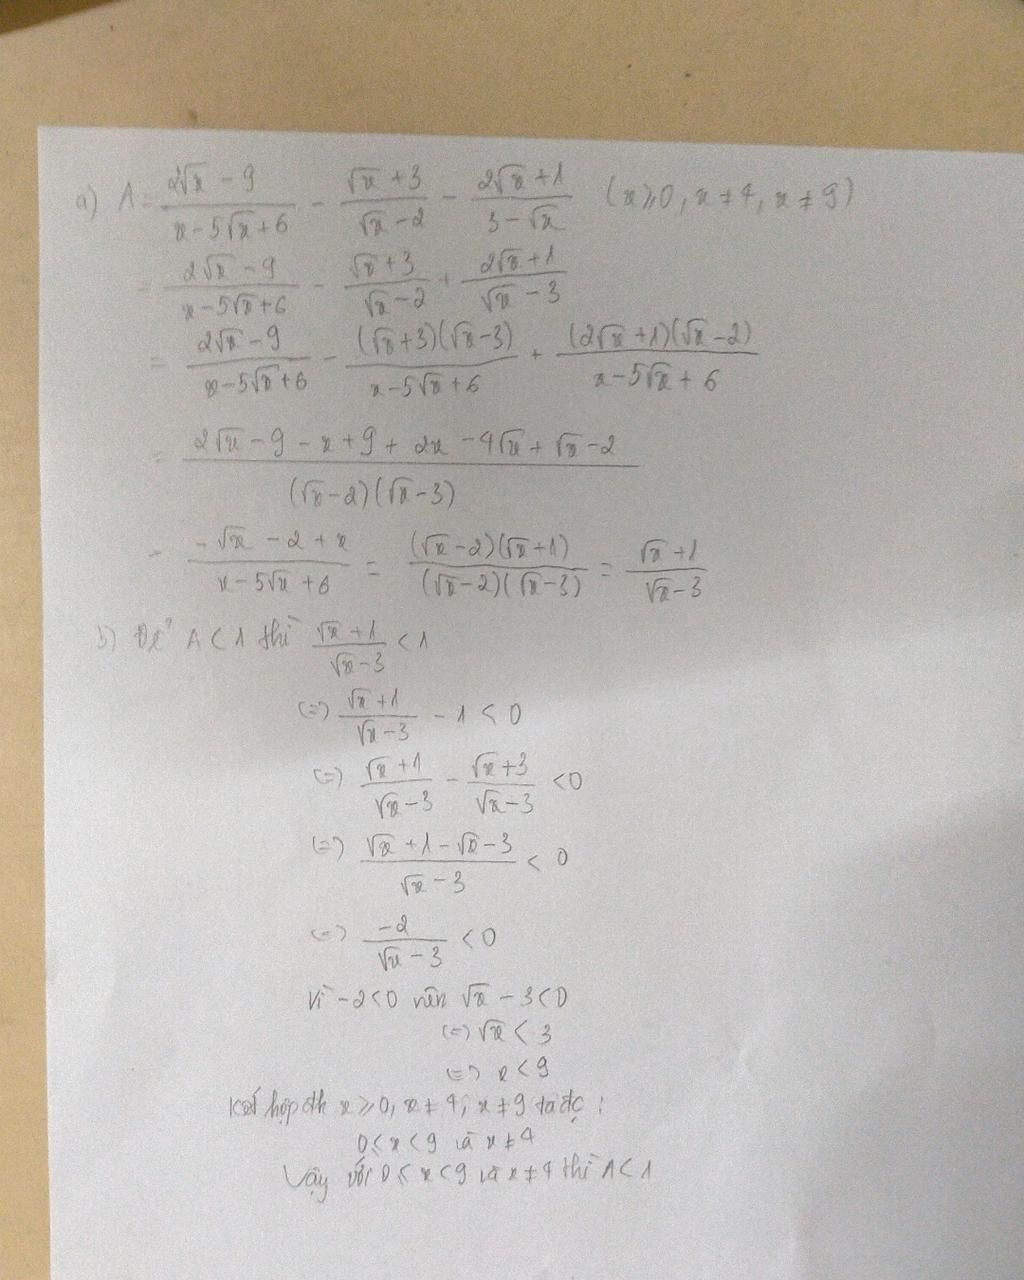 a) A = (2√x - 9)/(x - 5√x + 6) - (√x + 3)/(√x - 2) - (2√x + 1)/(3 - √x) (x ≥ 0, x ≠ 4, x ≠ 9)
= (2√x - 9)/(x - 5√x + 6) - (√x + 3)/(√x - 2) + (2√x + 1)/(√x - 3)
= (2√x - 9)/(x - 5√x + 6) - ((√x + 3)(√x - 3))/(x - 5√x + 6) + ((2√x + 1)(√x - 2))/(x - 5√x + 6)
= (2√x - 9 - x + 9 + 2x - 4√x + √x - 2)/((√x - 2)(√x - 3))
= (-√x - 2 + x)/(x - 5√x + 6) = ((√x - 2)(√x + 1))/((√x - 2)(√x - 3)) = (√x + 1)/(√x - 3)
b) Để A < 1 thì (√x + 1)/(√x - 3) < 1
(=) (√x + 1)/(√x - 3) - 1 < 0
(=) (√x + 1)/(√x - 3) - (√x + 3)/(√x - 3) < 0
(=) (√x + 1 - √x - 3)/(√x - 3) < 0
(=) -2/(√x - 3) < 0
Vì -2 < 0 nên √x - 3 < 0
(=) √x < 3
(=) x < 9
Kết hợp đk x ≥ 0, x ≠ 4, x ≠ 9 ta đc :
0 ≤ x < 9 và x ≠ 4
Vậy với 0 ≤ x < 9 và x ≠ 4 thì A < 1